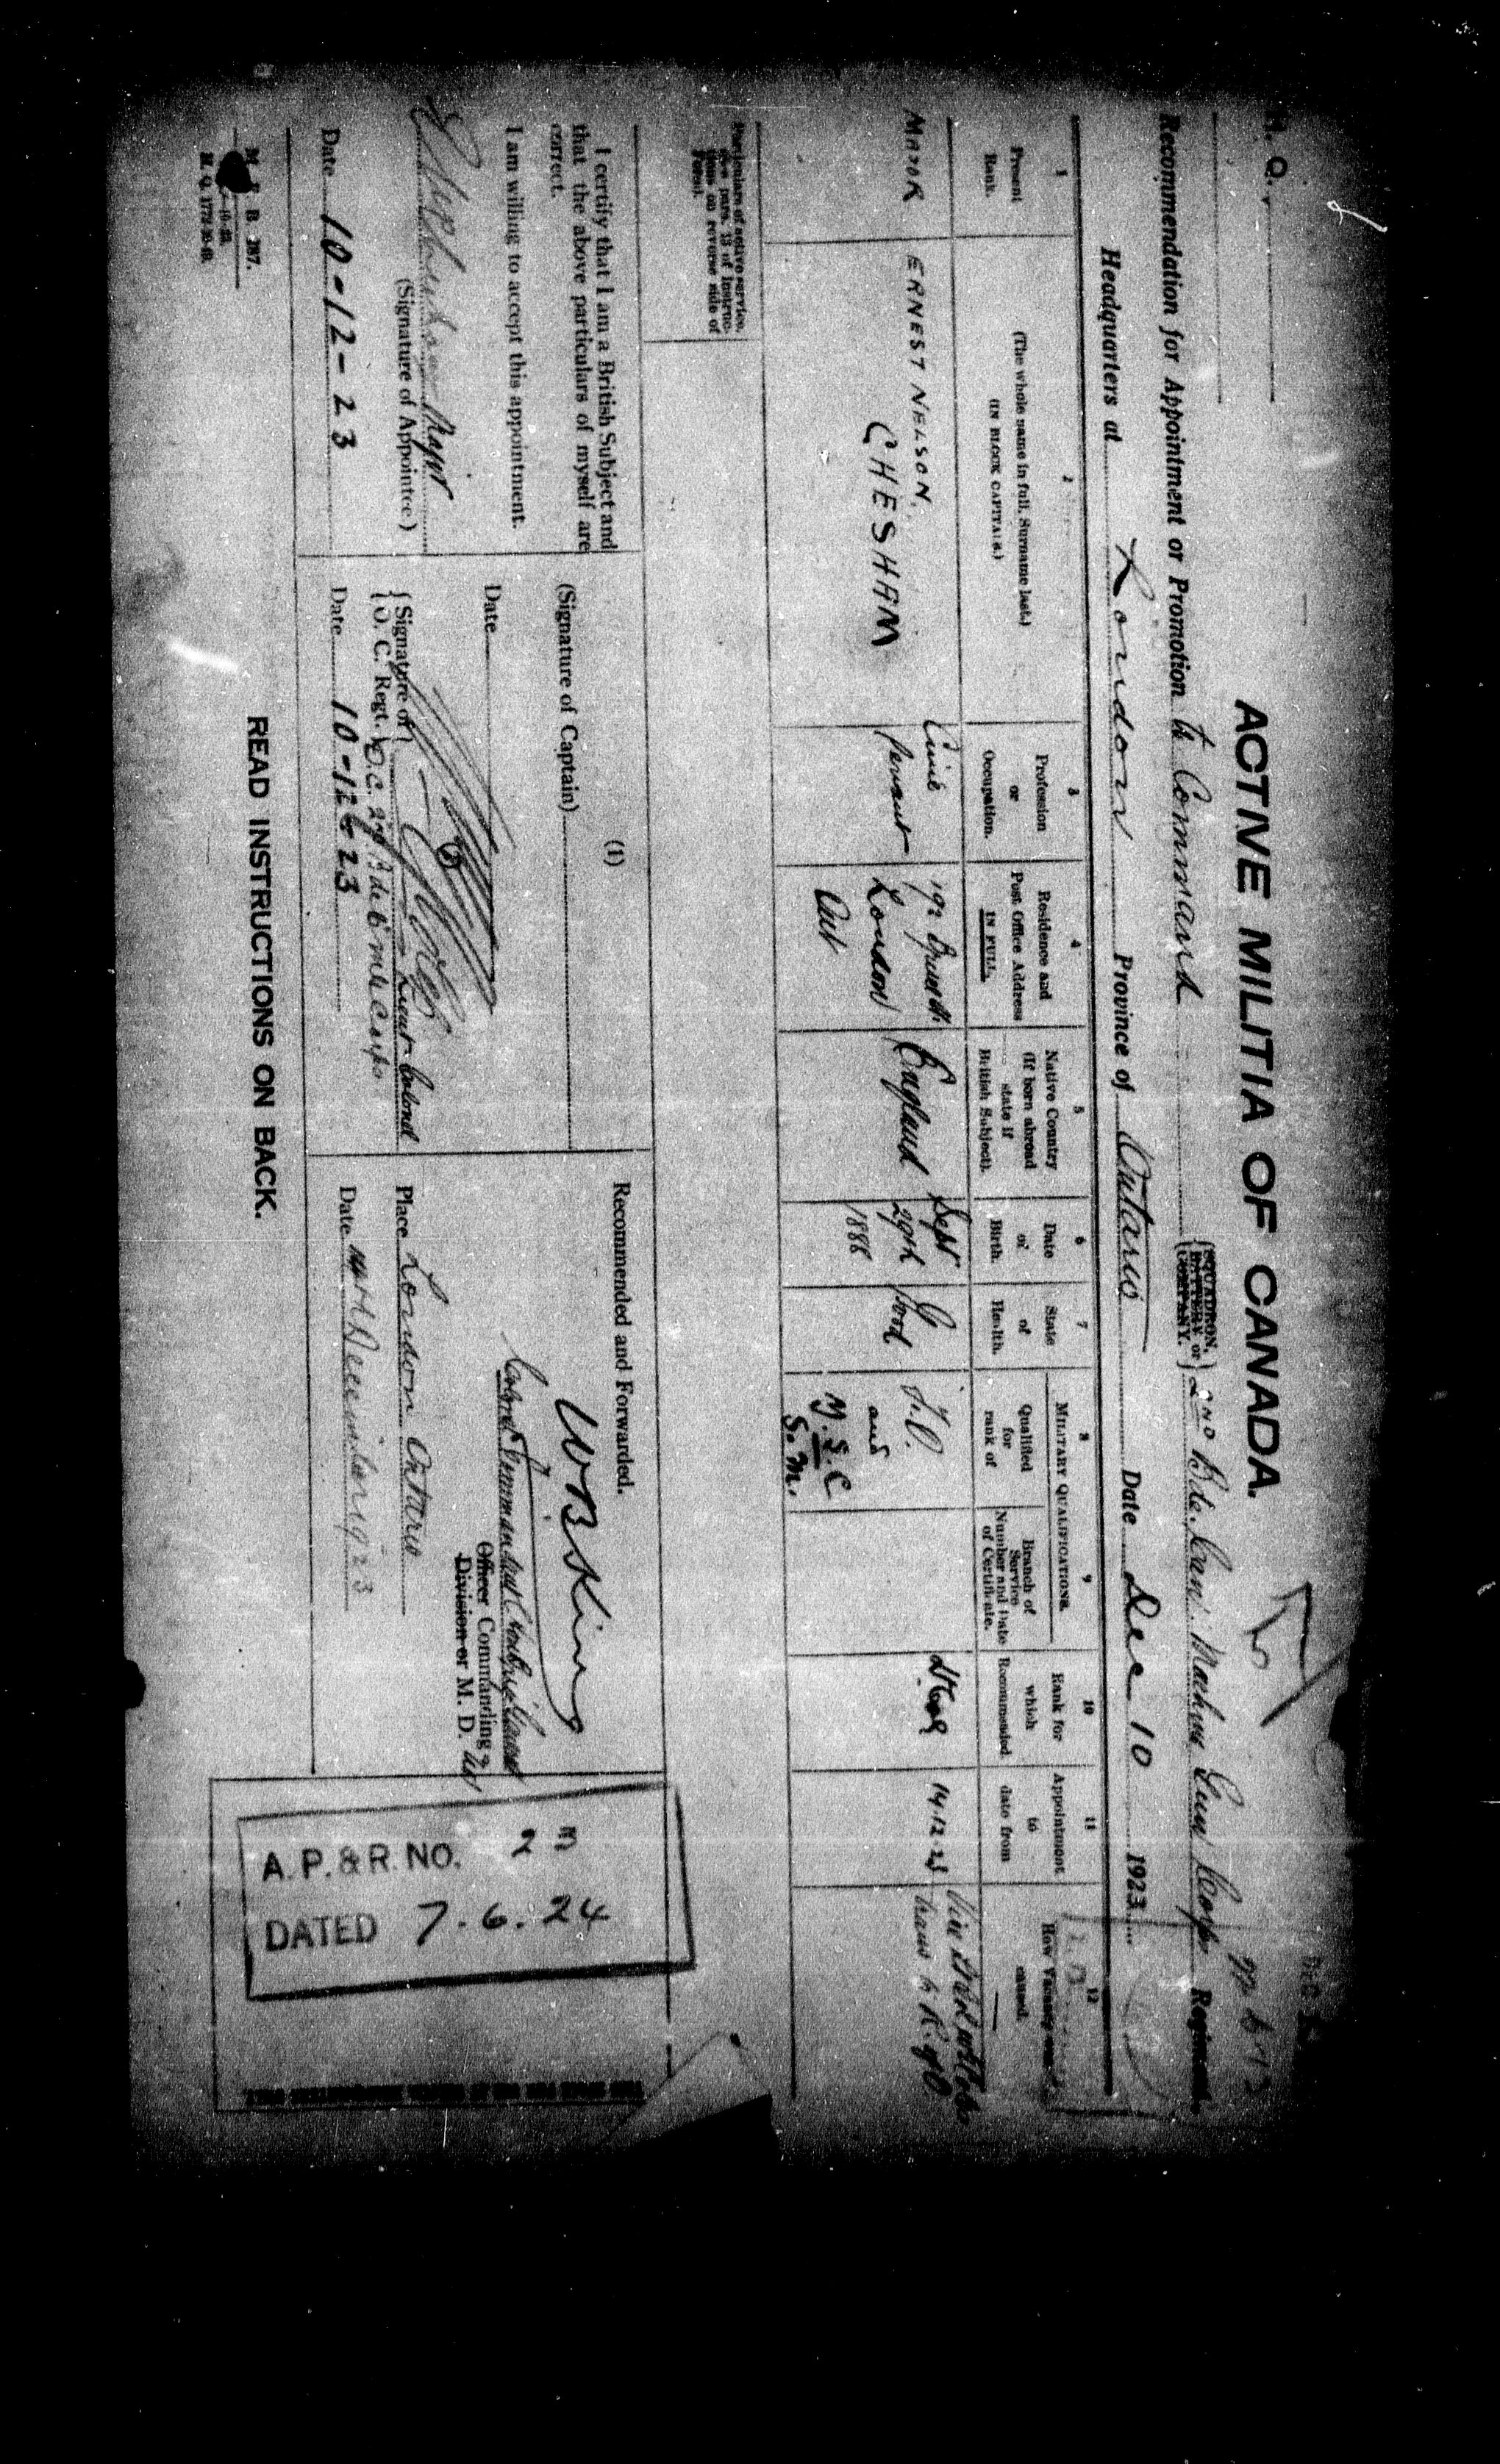 H. Q.
ACTIVE MILITIA OF CANADA.
Recommendation for Appointment or Promotion to Command {SQUADRON, BATTERY or COMPANY.} 2ND Bde. Can. Machine Gun Corps Regiment.
Headquarters at London Province of Ontario Date Dec 10 1923
1
Present Rank.
2
(The whole name in full. Surname last.)
(IN BLOCK CAPITALS.)
3
Profession or Occupation.
4
Residence and Post Office Address IN FULL.
5
Native Country (If born abroad state if British Subject).
6
Date of Birth.
7
State of Health.
MILITARY QUALIFICATIONS.
8
Qualified for rank of
9
Branch of Service Number and Date of Certificate.
10
Rank for which Recommended.
11
Appointment to date from
12
How Vacancy was caused.
MAJOR
ERNEST NELSON.
CHESHAM
Civil Servant
192
London
Ont
England
Sept 29th 1886
Good
F.O.
and
M.S.C
S.M.
14.12.23
trans to R. of O.
Particulars of active service. (See para. 13 of Instructions on reverse side of Form).
I certify that I am a British Subject and
that the above particulars of myself are
correct.
I am willing to accept this appointment.
Major
(Signature of Appointee)
Date 10-12-23
(1)
(Signature of Captain)
Date
{Signature of O. C. Regt.} Lieut-Colonel
O.C. 2nd Bde C M G Corps
Date 10-12-23
Recommended and Forwarded.
W B King
Colonel Commandant
Officer Commanding
Division or M. D.
Place London Ontario
Date 14th December 1923
A. P. & R. NO. 27
DATED 7.6.24
M. F. B. 267.
H. Q. 1772-39-
READ INSTRUCTIONS ON BACK.